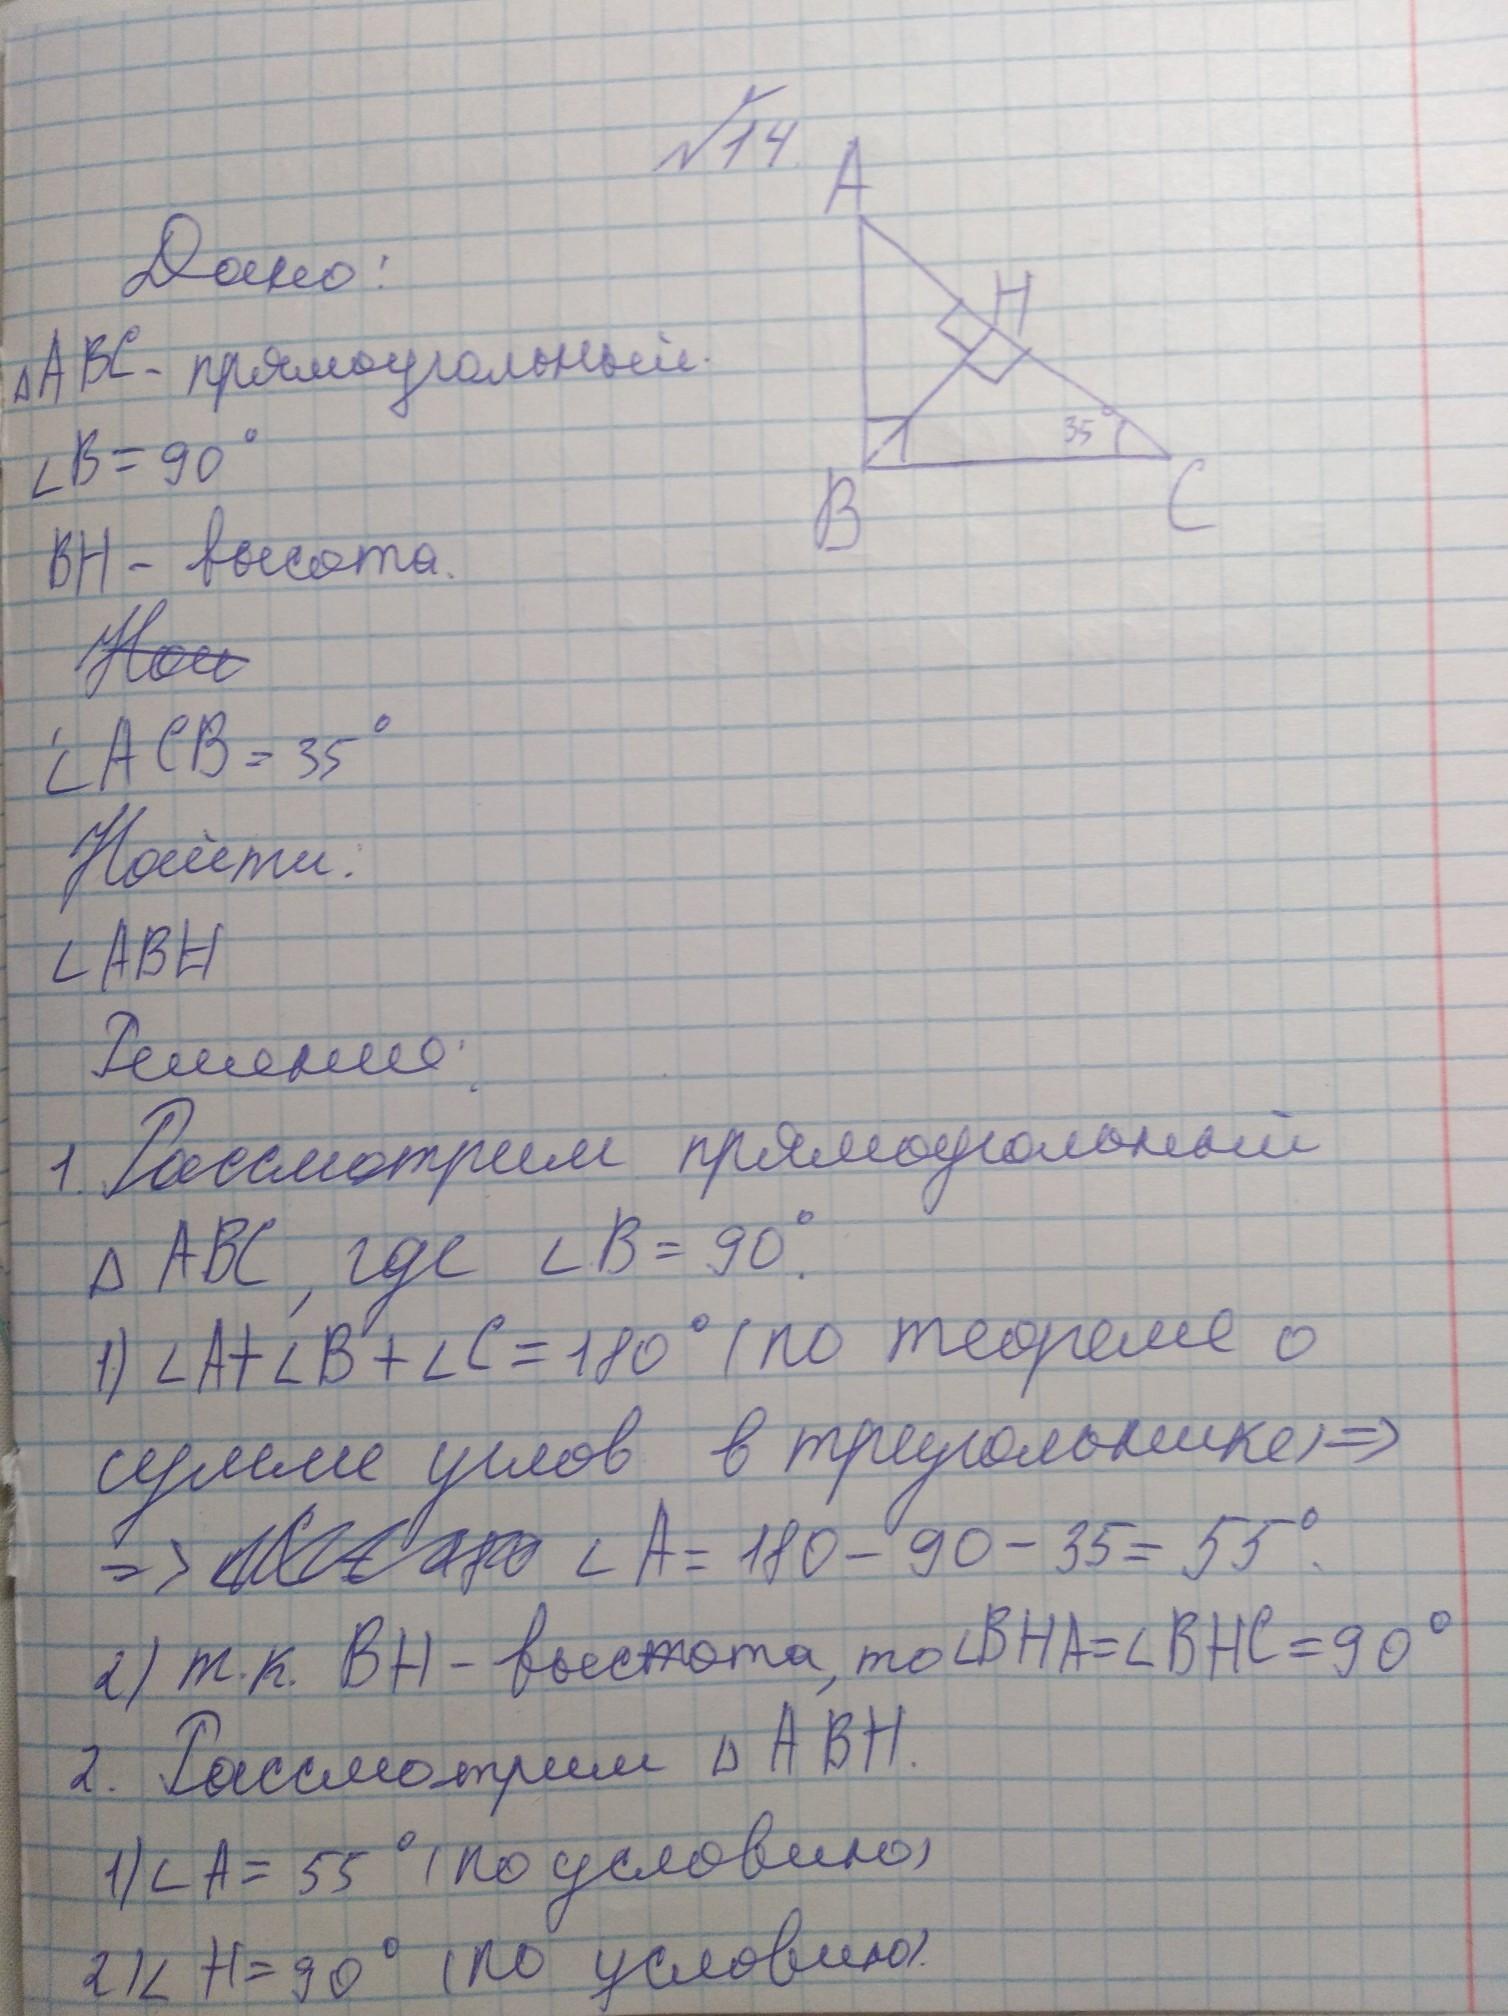 №14.
A
H
35°
B
C
Дано:
△ABC - прямоугольный.
∠B = 90°
BH - высота.
∠ACB = 35°
Найти:
∠ABH
Решение:
1. Рассмотрим прямоугольный
△ ABC, где ∠B = 90°.
1) ∠A+∠B+∠C=180° (по теореме о
сумме углов в треугольнике) =>
=> ∠A = 180 - 90 - 35 = 55°.
2) т.к. BH - высота, то ∠BHA=∠BHC=90°
2. Рассмотрим △ ABH.
1) ∠A = 55° (по условию)
2) ∠H=90° (по условию).